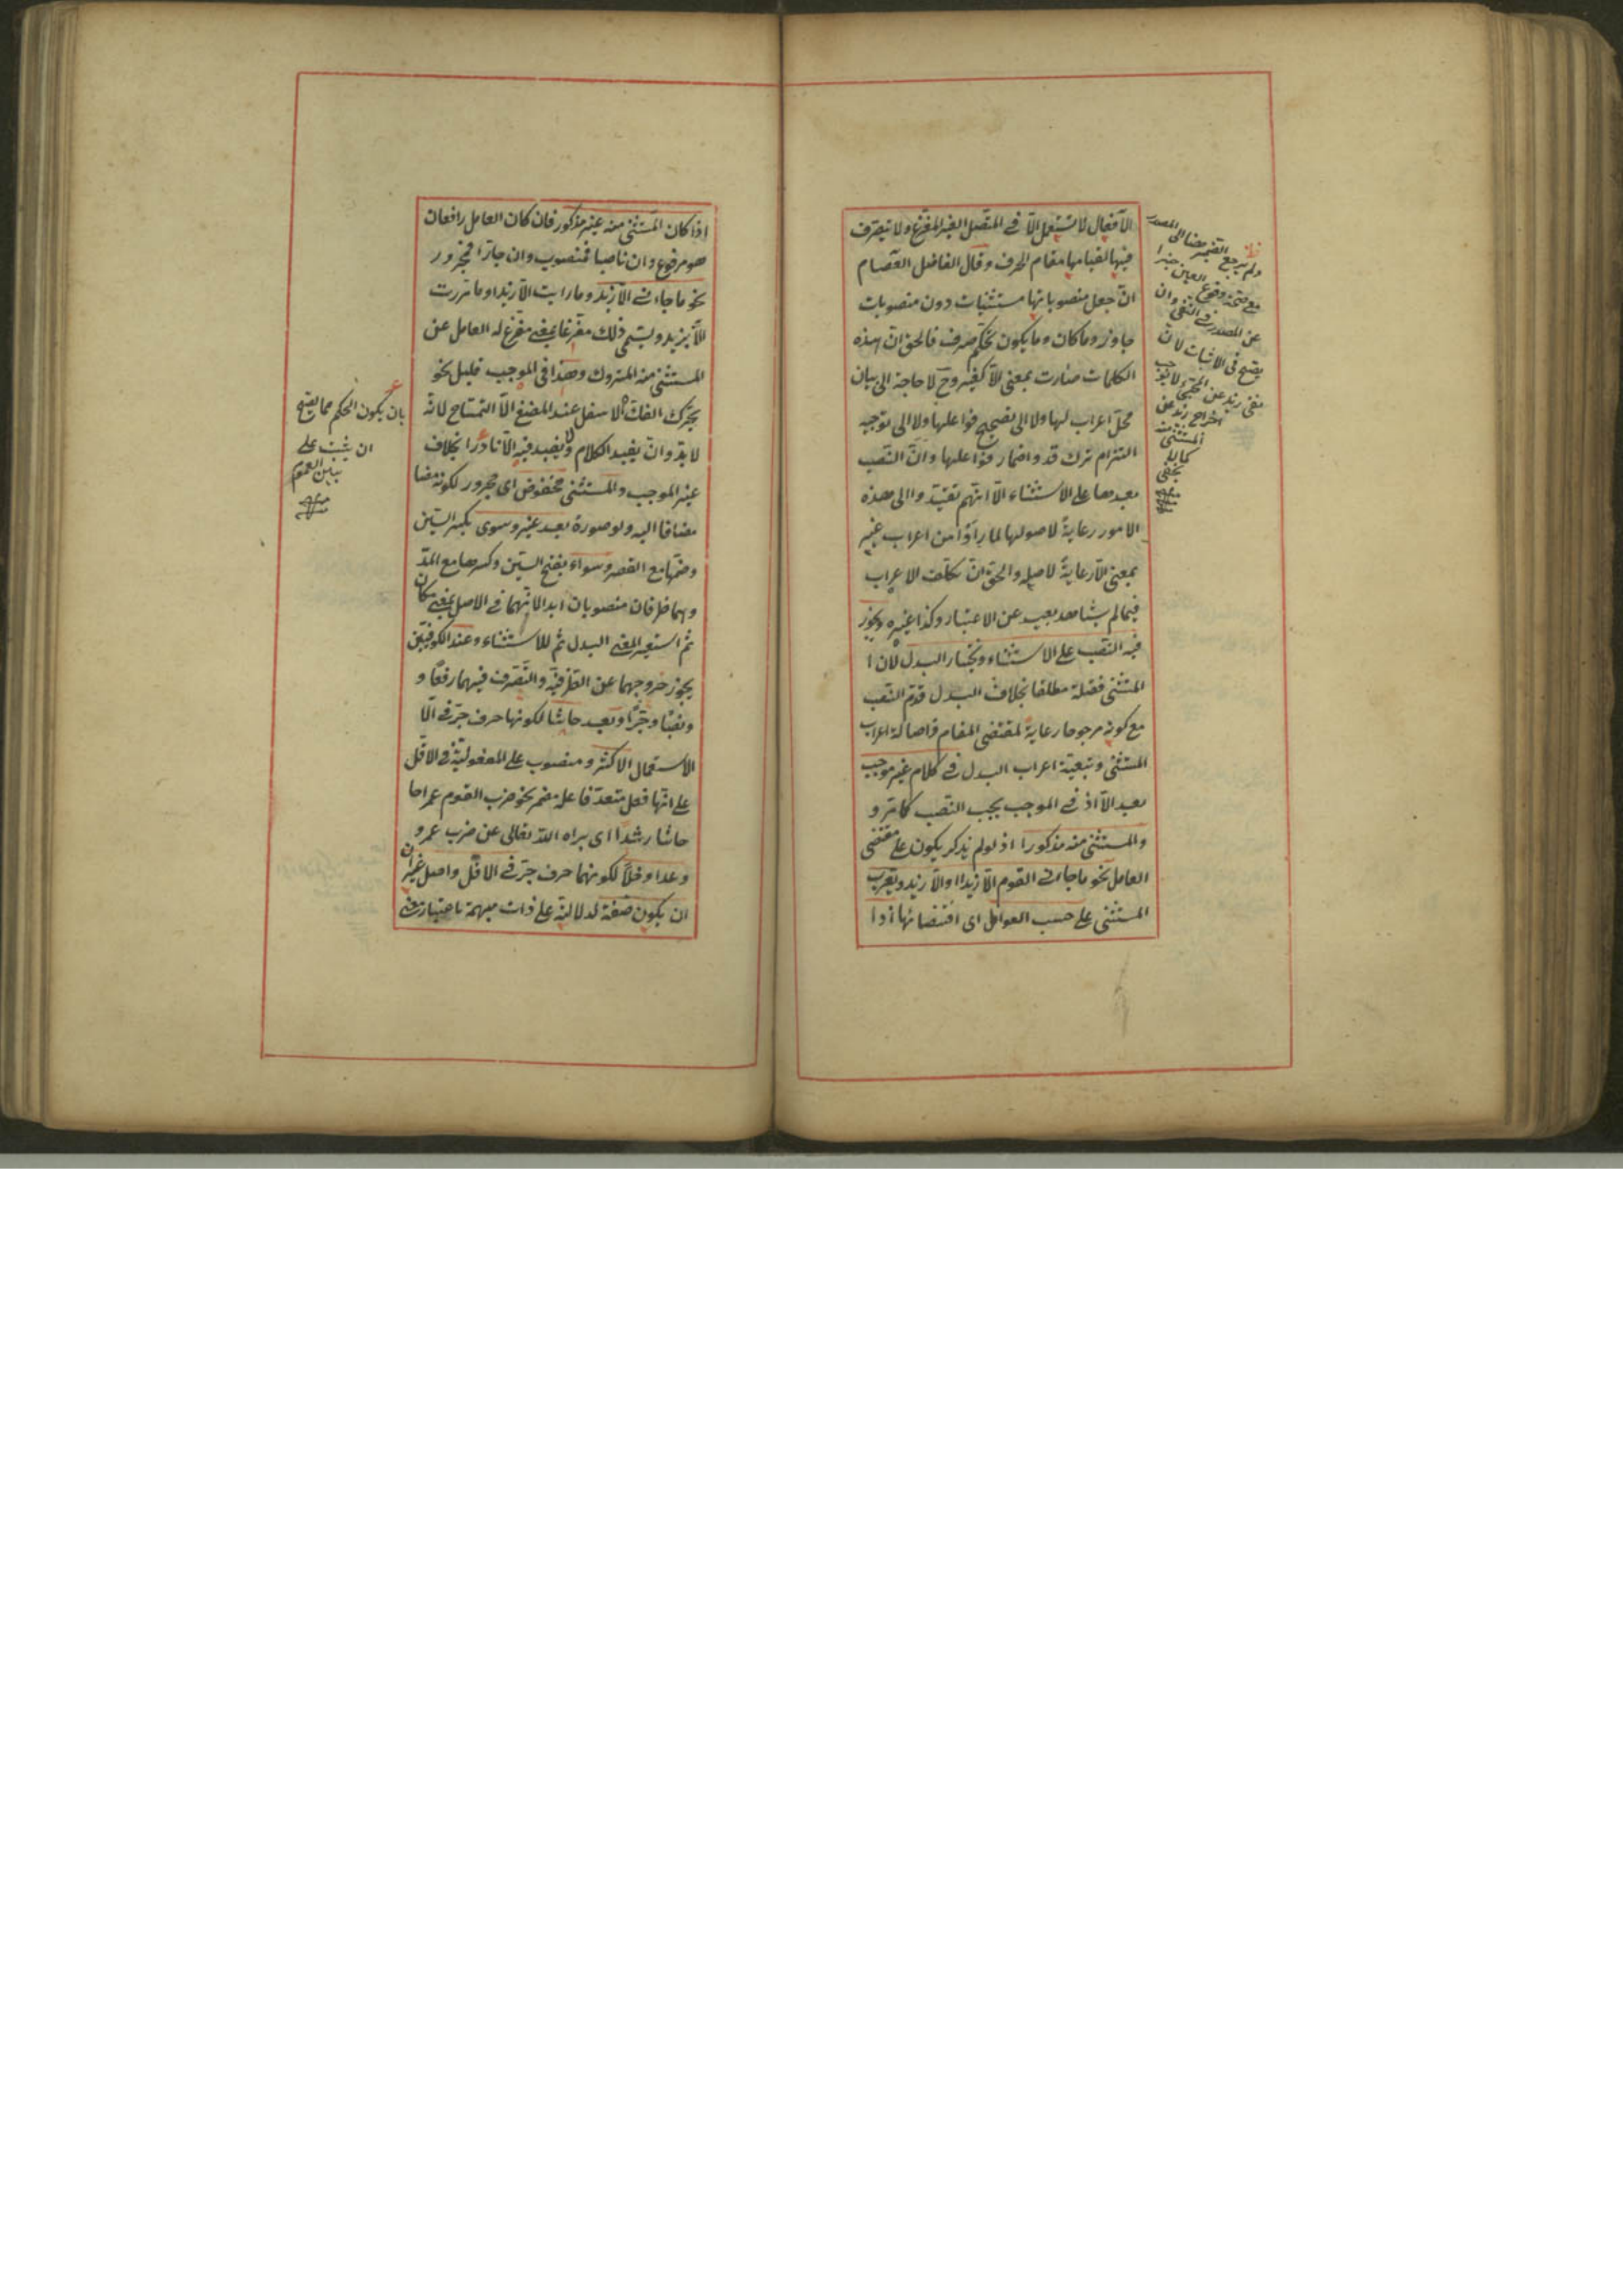 الافعال لا تستعمل الا في المتصل الغير المفرغ ولا يتصرف
فيها لقيامها مقام الحرف وقال الفاضل العصام
ان جعل منصوباتها مستثنيات دون منصوبات
جاوز وما كان وما يكون تحكم صرف فالحق ان هذه
الكلمات صارت بمعنى الا كغير وح لا حاجة الى بيان
محل اعراب لها ولا الى تصحيح فواعلها ولا الى توجيه
التزام ترك قد واضمار فواعلها وان النصب
بعدها على الاستثناء الا انهم تقيدوا الى هذه
الامور رعاية لاصولها لما راوا من اعراب غير
بمعنى الا رعاية لاصله والحق ان تكلف الاعراب
فيما لم يشاهد بعيد عن الاعتبار وكذا غيره ويجوز
فيه النصب على الاستثناء ويختار البدل لان ا
المستثنى فضلة مطلقا بخلاف البدل قدم النصب
مع كونه مرجوحا رعاية لمقتضى المقام واصالة اعراب
المستثنى وتبعية اعراب البدل في كلام غير موجب
بعد الا اذ في الموجب يجب النصب كما مر و
والمستثنى منه مذكورا اذ لو لم يذكر يكون على مقتضى
العامل نحو ما جاءني القوم الا زيدا والا زيد ويعرب
المستثنى على حسب العوامل اى اقتضائها اذا
ولم يرجع الضمير هنا الى المصدر
مع صحة وقوع العين خبرا
عن المصدر في النفى وان
يصح في الاثبات لان
نفى زيد عن المجئ لا يوجب
اخراج زيد عن
المستثنى منه
كما لا
يخفى
اذا كان المستثنى منه غير مذكور فان كان العامل رافعا ن
هو مرفوع وان ناصبا فمنصوب وان جارا فمجرور
نحو ما جاءني الا زيد وما رايت الا زيدا وما مررت
الا بزيد ويسمى ذلك مفرغا بمعنى مفرغ له العامل عن
المستثنى منه المتروك وهذا في الموجب قليل نحو
يحرك الفك الاسفل عند المضغ الا التمساح لانه
لا بد وان يفيد الكلام ولا يفيد فيه الا نادرا بخلاف
غير الموجب والمستثنى مخفوض اى مجرور لكونه
مضافا اليه ولو صورة بعد غير وسوى بكسر السين
وضمها مع القصر وسواء بفتح السين وكسرها مع المد
وهما ظرفان منصوبان ابدا لانهما في الاصل بمعنى مكان
ثم استعير لمعنى البدل ثم للاستثناء وعند الكوفيين
يجوز خروجهما عن الظرفية والتصرف فيهما رفعا و
ونصبا وجرا وبعد حاشا لكونها حرف جر في الا
الاستعمال الاكثر ومنصوب على المفعولية في الاقل
على انها فعل متعد فاعله مضمر نحو ضرب القوم عمرا حا
حاشا رشدا اى براه الله تعالى عن ضرب عمرو
وعدا وخلا لكونهما حرف جر في الاقل واصل غير ان
ان يكون صفة لدلالته على ذات مبهمة باعتبار معنى
بان يكون الحكم مما يصح
ان يثبت على
سبيل العموم